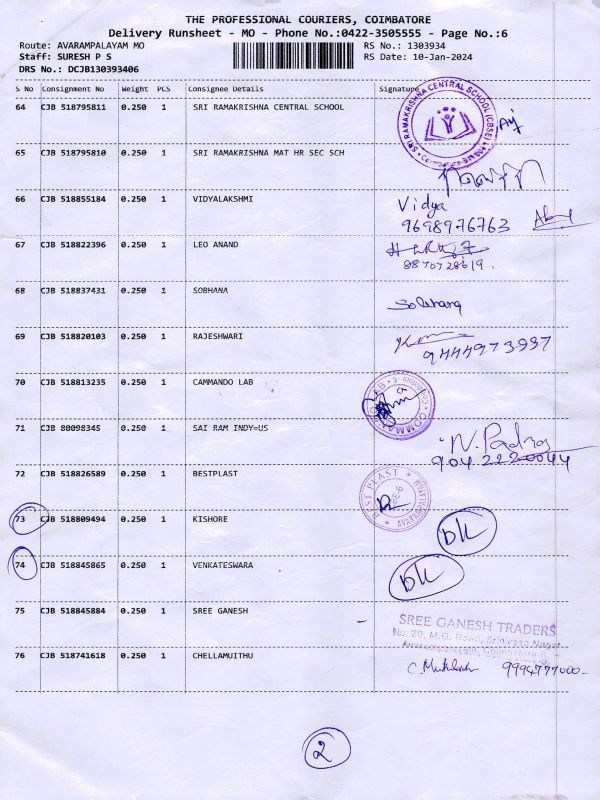 THE PROFESSIONAL COURIERS, COIMBATORE
Delivery Runsheet - MO - Phone No.:0422-3505555 - Page No.:6
Route: AVARAMPALAYAM MO RS No.: 1303934
Staff: SURESH P S RS Date: 10-Jan-2024
DRS No.: DCJB130393406
S No Consignment No Weight PCS Consignee Details Signature
64 CJB 518795811 0.250 1 SRI RAMAKRISHNA CENTRAL SCHOOL
SRI RAMAKRISHNA CENTRAL SCHOOL (CBSE)
65 CJB 518795810 0.250 1 SRI RAMAKRISHNA MAT HR SEC SCH
66 CJB 518855184 0.250 1 VIDYALAKSHMI Vidya
9698976763
67 CJB 518822396 0.250 1 LEO ANAND
8870728619.
68 CJB 518837431 0.250 1 SOBHANA
69 CJB 518820103 0.250 1 RAJESHWARI
9444973937
70 CJB 518813235 0.250 1 CAMMANDO LAB
71 CJB 80098345 0.250 1 SAI RAM INDY=US
N. Padma
904 2220044
72 CJB 518826589 0.250 1 BESTPLAST
73 CJB 518809494 0.250 1 KISHORE
DK
74 CJB 518845865 0.250 1 VENKATESWARA DK
75 CJB 518845884 0.250 1 SREE GANESH
SREE GANESH TRADERS
No: 20, M.G. Road, Srinivasa Nagar
76 CJB 518741618 0.250 1 CHELLAMUITHU
9994777000-
2